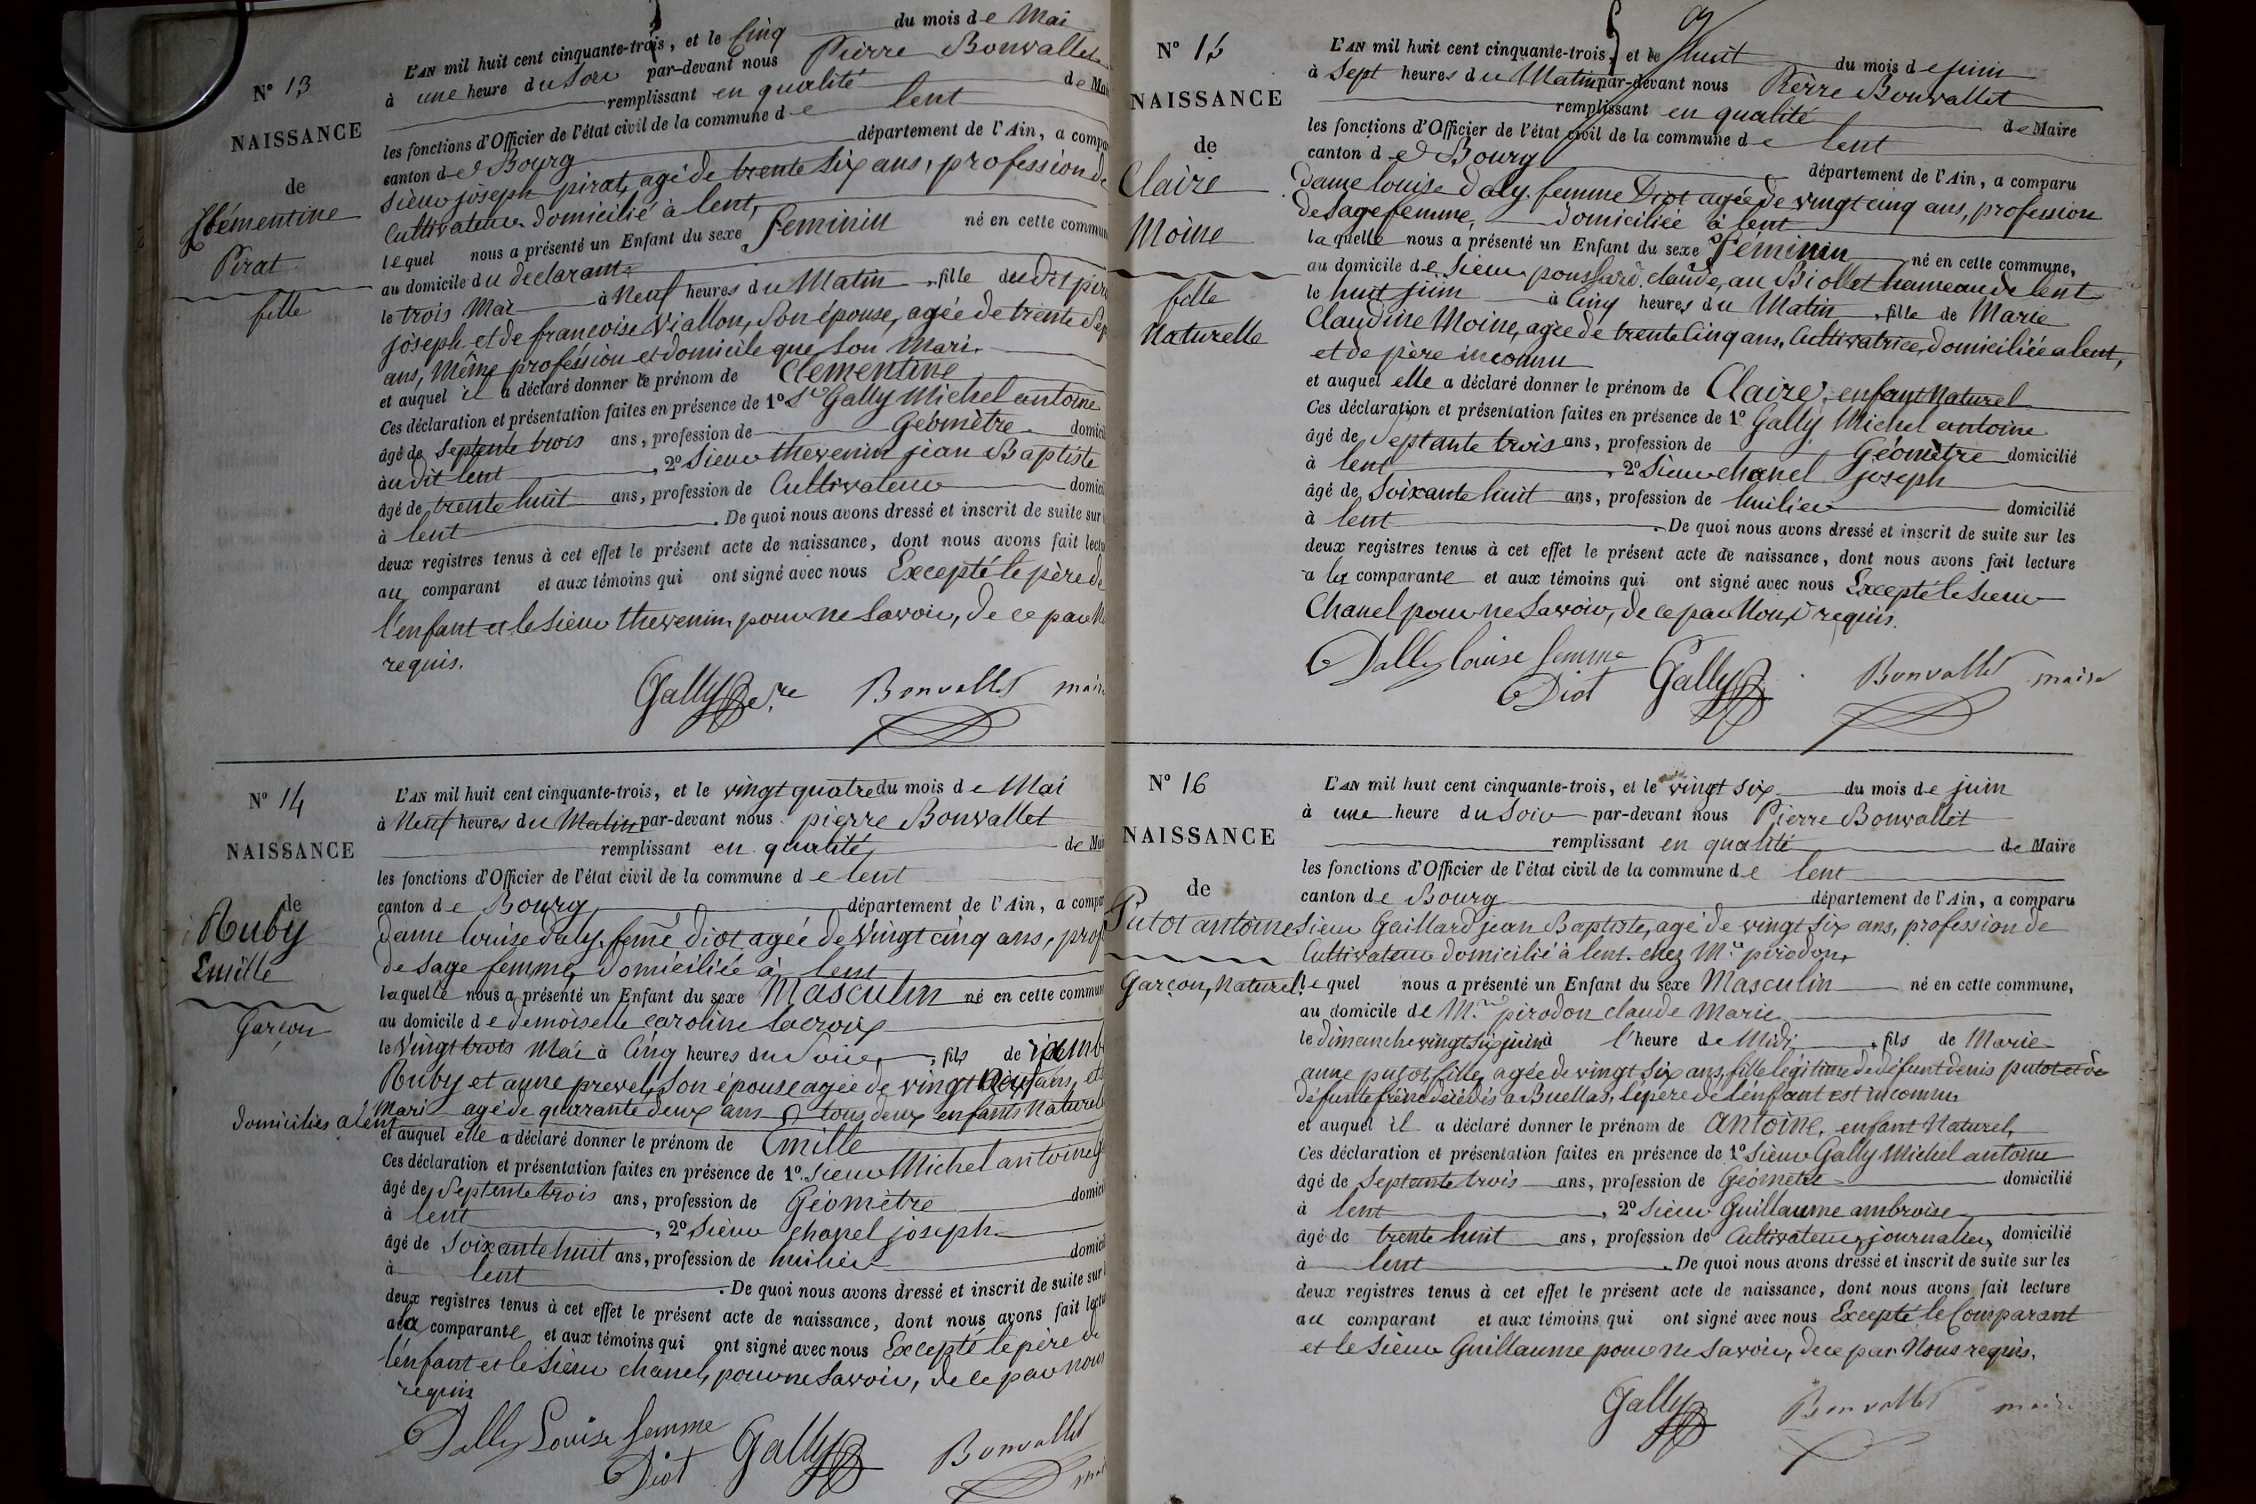 N° 13
NAISSANCE
de
Clémentine
Pirat
fille
L'AN mil huit cent cinquante-trois, et le Cinq du mois de Mai
à une heure du Soir par-devant nous Pierre Bonvallet
remplissant en qualité de Mai
les fonctions d'Officier de l'état civil de la commune de lent
canton de Bourg département de l'Ain, a compa
Sieur joseph pirat, agé de trente Six ans, profession de
Cultivateur domicilié à lent,
lequel nous a présenté un Enfant du sexe feminin né en cette commun
au domicile du déclarant,
le trois Mai à Neuf heures du Matin, fille dudit pira
joseph et de francoise Viallon, Son épouse, agée de trente Sep
ans, Même profession et domicile que Son Mari.
et auquel il a déclaré donner le prénom de Clémentine
Ces déclaration et présentation faites en présence de 1° Sr Gally Michel antoine
âgé de Septente trois ans, profession de Géomètre domici
à udit lent, 2° Sieur thevenin jean Baptiste
âgé de trente huit ans, profession de Cultivateur domici
à lent. De quoi nous avons dressé et inscrit de suite sur
deux registres tenus à cet effet le présent acte de naissance, dont nous avons fait lectu
au comparant et aux témoins qui ont signé avec nous Excepté le père de
l'enfant et le Sieur thevenin, pour ne Savoir, de ce par N
requis.
Gally Bonvallet maire
N° 14
NAISSANCE
de
Ruby
Emille
Garçon
domiciliés a lent
L'AN mil huit cent cinquante-trois, et le vingt quatre du mois de Mai
à Neuf heures du Matin par-devant nous pierre Bonvallet
remplissant en qualité de Mai
les fonctions d'Officier de l'état civil de la commune de lent
canton de Bourg département de l'Ain, a compar
Dame louise daly, feme diot, agée de Vingt cinq ans, prof
de Sage femme, domiciliée à lent
laquelle nous a présenté un Enfant du sexe Masculin né en cette commun
au domicile de demoiselle caroline lacroix
le Vingt trois Mai à Cinq heures du Soir, fils de
Ruby et anne prevel, Son épouse agée de vingt Neuf ans, et
Mari agé de quarante deux ans tous deux enfants Naturel
et auquel elle a déclaré donner le prénom de Emille
Ces déclaration et présentation faites en présence de 1°. Sieur Michel antoine
âgé de Septente trois ans, profession de Géomètre domici
à lent, 2° Sieur chanel joseph
âgé de Soixante huit ans, profession de huilier domici
à lent. De quoi nous avons dressé et inscrit de suite sur
deux registres tenus à cet effet le présent acte de naissance, dont nous avons fait lectu
a la comparante et aux témoins qui ont signé avec nous Excepté le père de
l'enfant et le Sieur chanel, pour ne Savoir, de ce par nous
requis
Dally Louise femme
Diot Gally Bonvallet
N° 15
NAISSANCE
de
Claire
Moine
fille
Naturelle
L'AN mil huit cent cinquante-trois, et le huit du mois de juin
à Sept heures du Matin par-devant nous Pierre Bonvallet
remplissant en qualité de Maire
les fonctions d'Officier de l'état civil de la commune de lent
canton de Bourg département de l'Ain, a comparu
Dame louise Daly, femme Diot agée de vingt cinq ans, profession
de Sage femme, domiciliée à lent
laquelle nous a présenté un Enfant du sexe Féminin né en cette commune,
au domicile de Sieur poussard, claude, au Biollet hameau de lent
le huit juin à Cinq heures du Matin, fille de Marie
Claudine Moine, agée de trente Cinq ans, Cultivatrice, domiciliée a lent,
et de père inconnu
et auquel elle a déclaré donner le prénom de Claire, enfant Naturel
Ces déclaration et présentation faites en présence de 1° Gally Michel antoine
âgé de Septante trois ans, profession de Géomètre domicilié
à lent, 2° Sieur chanel joseph
âgé de Soixante huit ans, profession de huilier domicilié
à lent. De quoi nous avons dressé et inscrit de suite sur les
deux registres tenus à cet effet le présent acte de naissance, dont nous avons fait lecture
a la comparante et aux témoins qui ont signé avec nous Excepté le Sieur
Chanel pour ne Savoir, de ce par Nous requis.
Dally louise femme
Diot Gally Bonvallet maire
N° 16
NAISSANCE
de
Putot antoine
Garçon, Naturel
L'AN mil huit cent cinquante-trois, et le vingt six du mois de juin
à une heure du Soir par-devant nous Pierre Bonvallet
remplissant en qualité de Maire
les fonctions d'Officier de l'état civil de la commune de lent
canton de Bourg département de l'Ain, a comparu
Sieur Gaillard jean Baptiste, agé de vingt Six ans, profession de
Cultivateur domicilié à lent. chez Mr pirodon,
lequel nous a présenté un Enfant du sexe Masculin né en cette commune,
au domicile de M. pirodon claude Marie
le dimanche vingt Six juin à l'heure de Midi, fils de Marie
anne putot, fille, agée de vingt Six ans, fille légitime de défunt denis putot et de
défunte décédés a Buellas, le père de l'énfant est inconnu
et auquel il a déclaré donner le prénom de antoine, enfant Naturel,
Ces déclaration et présentation faites en présence de 1° Sieur Gally Michel antoine
âgé de Septante trois ans, profession de Géomètre domicilié
à lent, 2° Sieur Guillaume ambroise
âgé de trente huit ans, profession de Cultivateur, journalier, domicilié
à lent. De quoi nous avons dressé et inscrit de suite sur les
deux registres tenus à cet effet le présent acte de naissance, dont nous avons fait lecture
au comparant et aux témoins qui ont signé avec nous Excepté le Comparant
et le Sieur Guillaume pour ne Savoir, de ce par Nous requis.
Gally Bonvallet maire